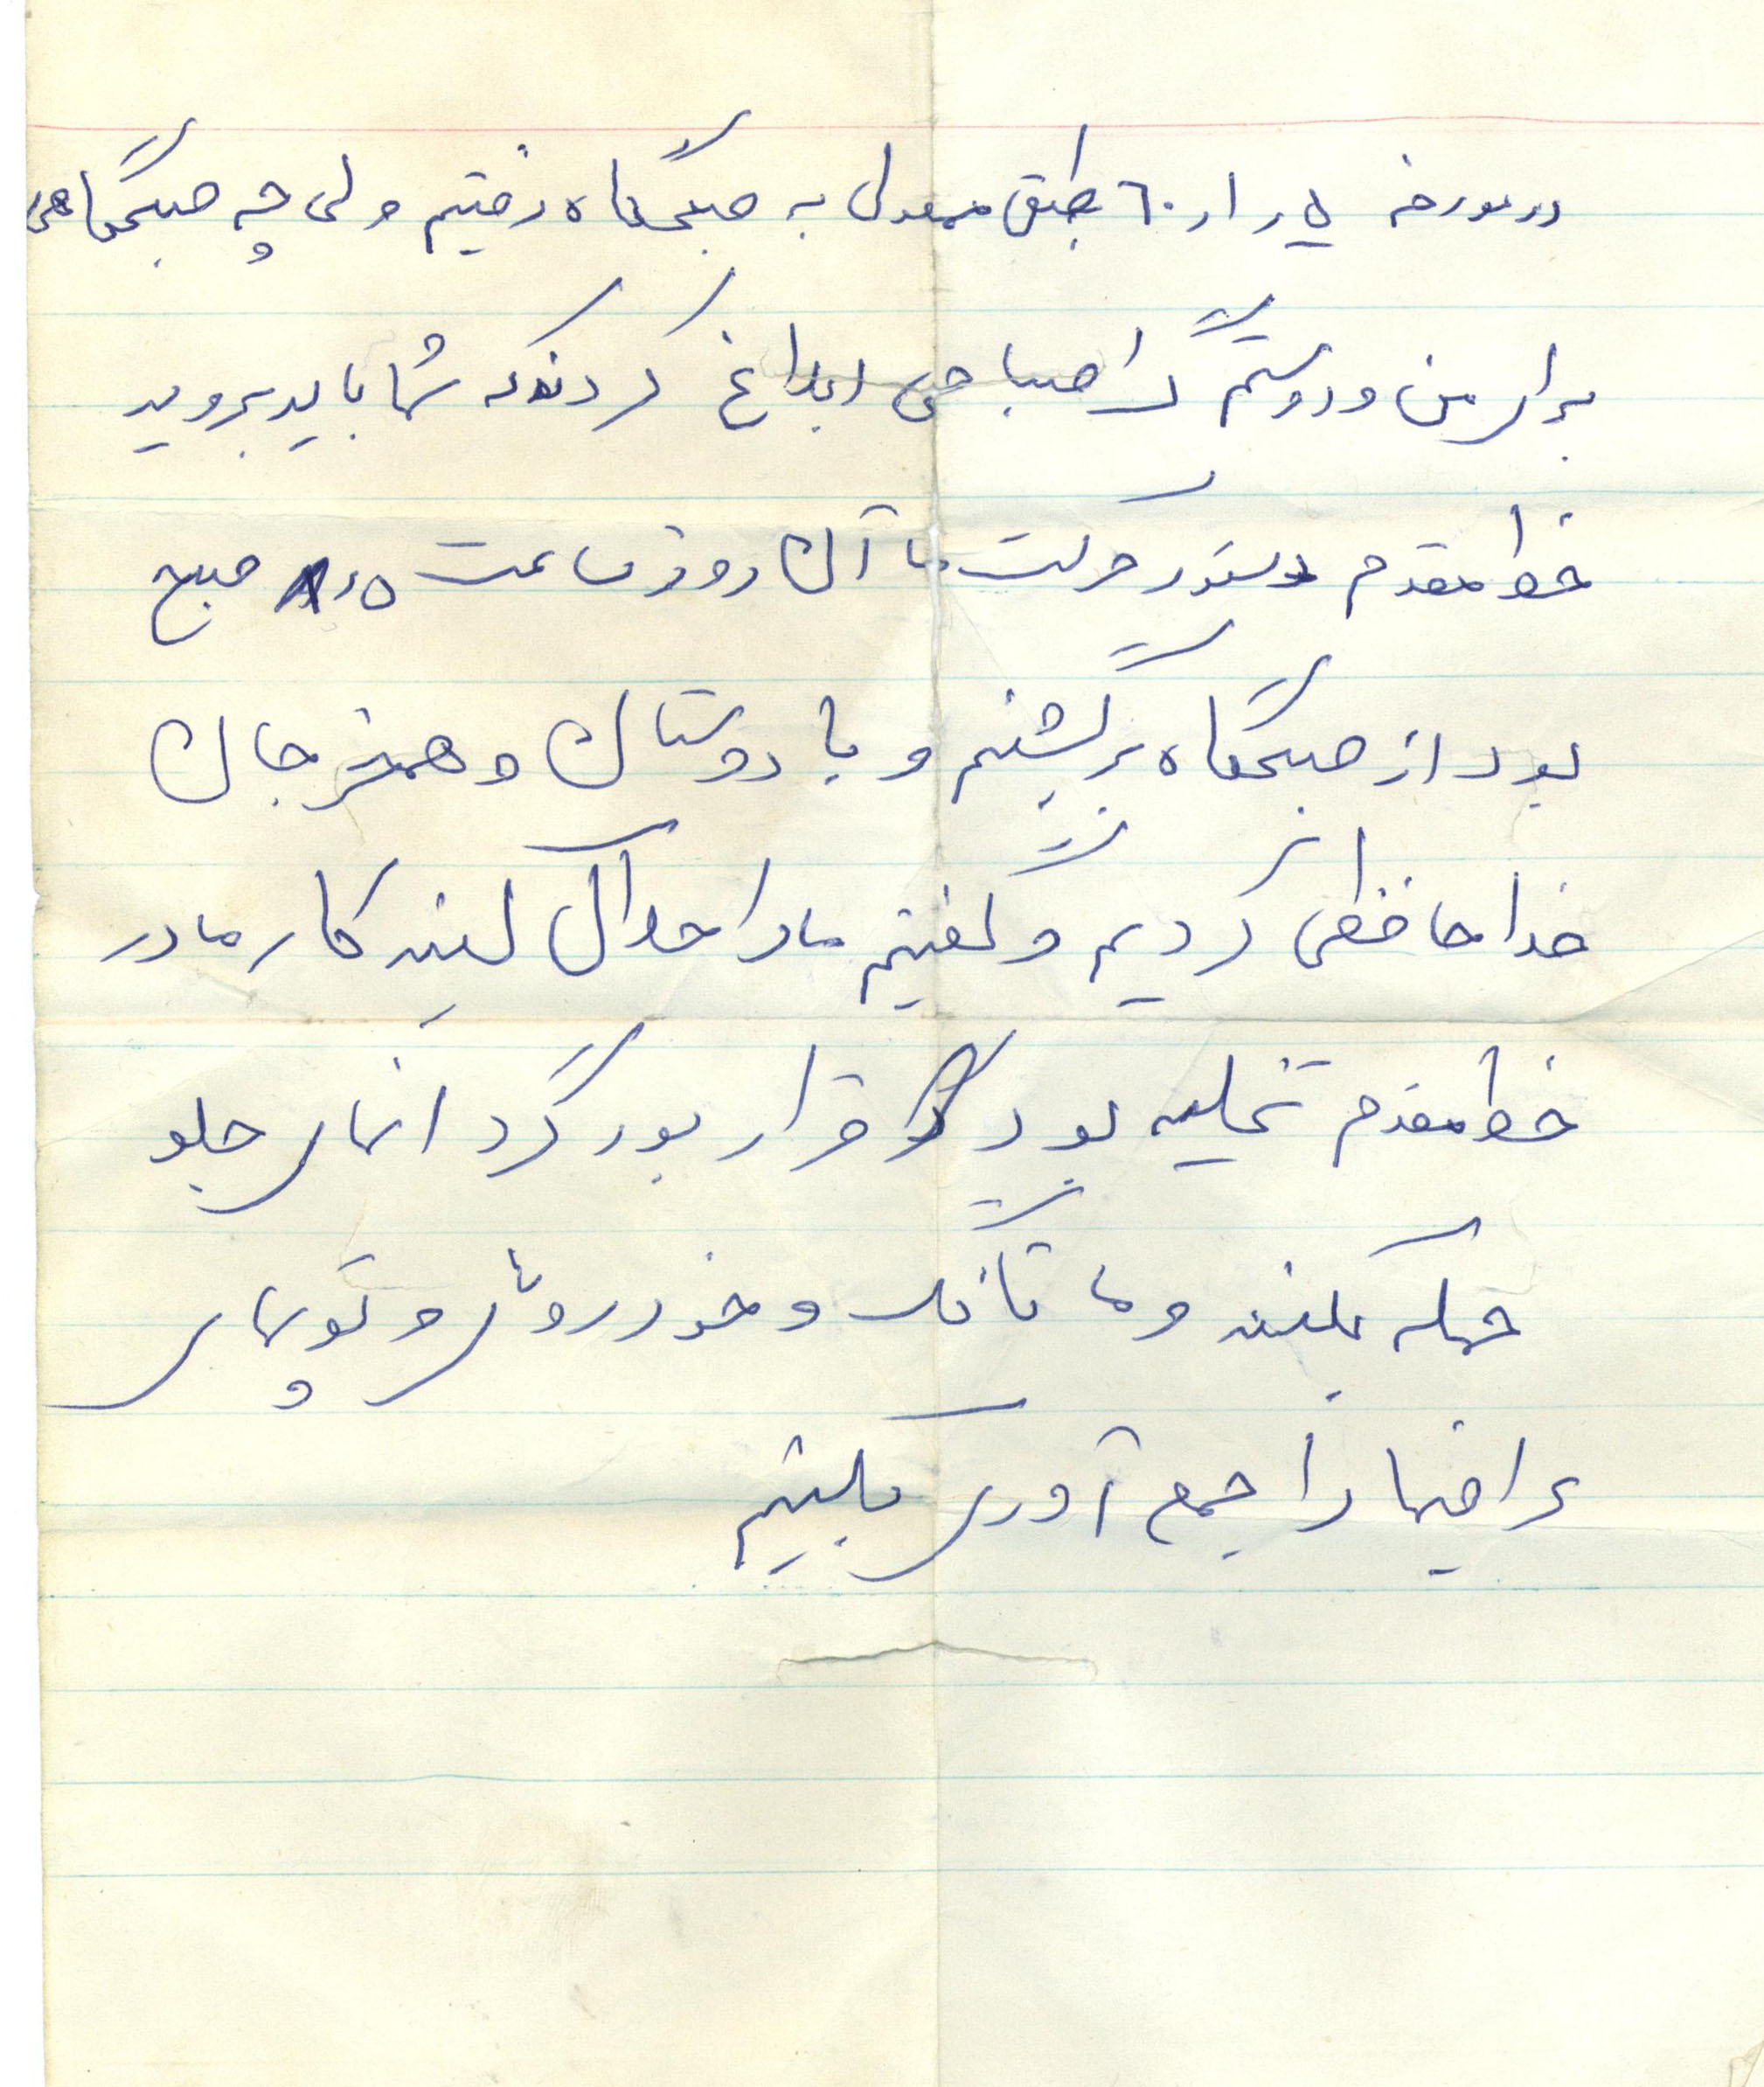 در مورخه ۵ ر ۱ ر ۶۰ طبق معمول به صبحگاه رفتیم ولی چه صبحگاهی
برای من و دوستم صباحی ابلاغ کردند که شما باید بروید
خط مقدم دستور حرکت ما آن روز ساعت ۸٫۵ صبح
بود از صبحگاه برگشتیم و با دوستان و همزجان
خداحافظی کردیم و گفتیم ما را حلال کنید کار ما در
خط مقدم تخلیه بود قرار بود گردانهای جلو
حمله بکنند و ما تانک و خودروها و توپهای
عراقیها را جمع آوری بکنیم